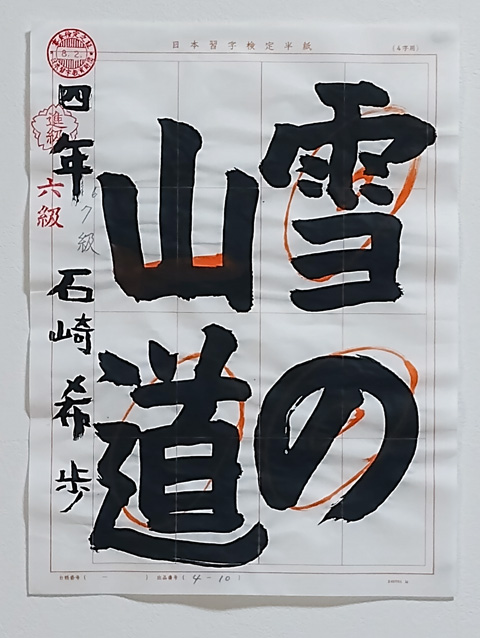 日本習字検定半紙
(4字用)
雪の
山道
四年 石崎希歩
進級
六級
7級
8.2.
出品番号(4-10)